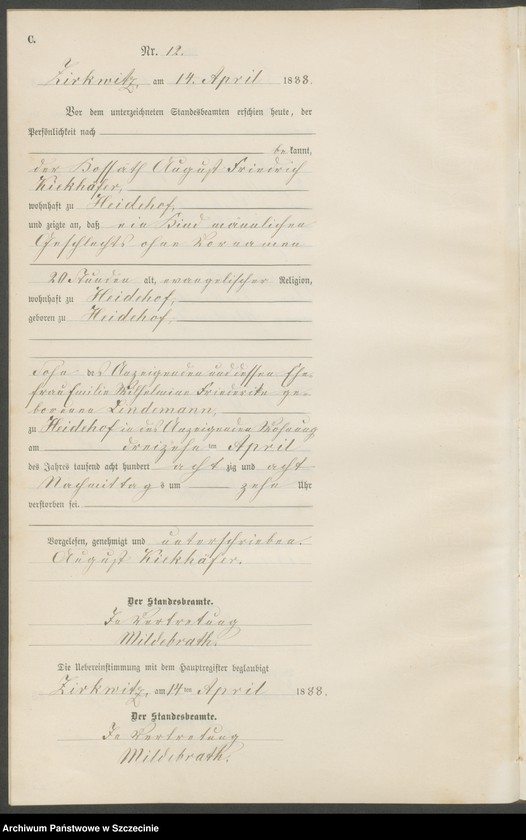 C.
Nr. 12.
Zirkwitz, am 14. April 1888.
Vor dem unterzeichneten Standesbeamten erschien heute, der
Persönlichkeit nach
be kannt,
der Kossäth August Friedrich
Kiekhäfer,
wohnhaft zu Heidehof,
und zeigte an, daß ein Kind männlichen
Geschlechts ohne Vornamen
20 Stunden alt, evangelischer Religion,
wohnhaft zu Heidehof,
geboren zu Heidehof,
Sohn des Anzeigenden und dessen Ehe-
frau Emilie Wilhelmine Friederike ge-
borenen Lindemann,
zu Heidehof in des Anzeigenden Wohnung
am dreizehn ten April
des Jahres tausend acht hundert acht zig und acht
Nachmittag s um zehn Uhr
verstorben sei.
Vorgelesen, genehmigt und unterschrieben
August Kiekhäfer.
Der Standesbeamte.
In Vertretung
Mildebrath.
Die Uebereinstimmung mit dem Hauptregister beglaubigt
Zirkwitz, am 14ten April 1888.
Der Standesbeamte.
In Vertretung
Mildebrath.
Archiwum Państwowe w Szczecinie